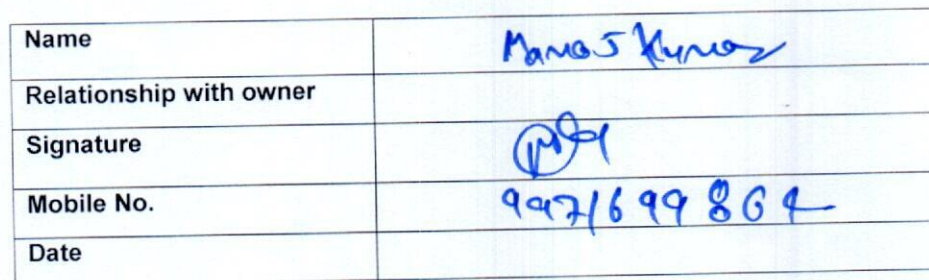 Name Manoj Kumar
Relationship with owner
Signature
Mobile No. 9971699864
Date